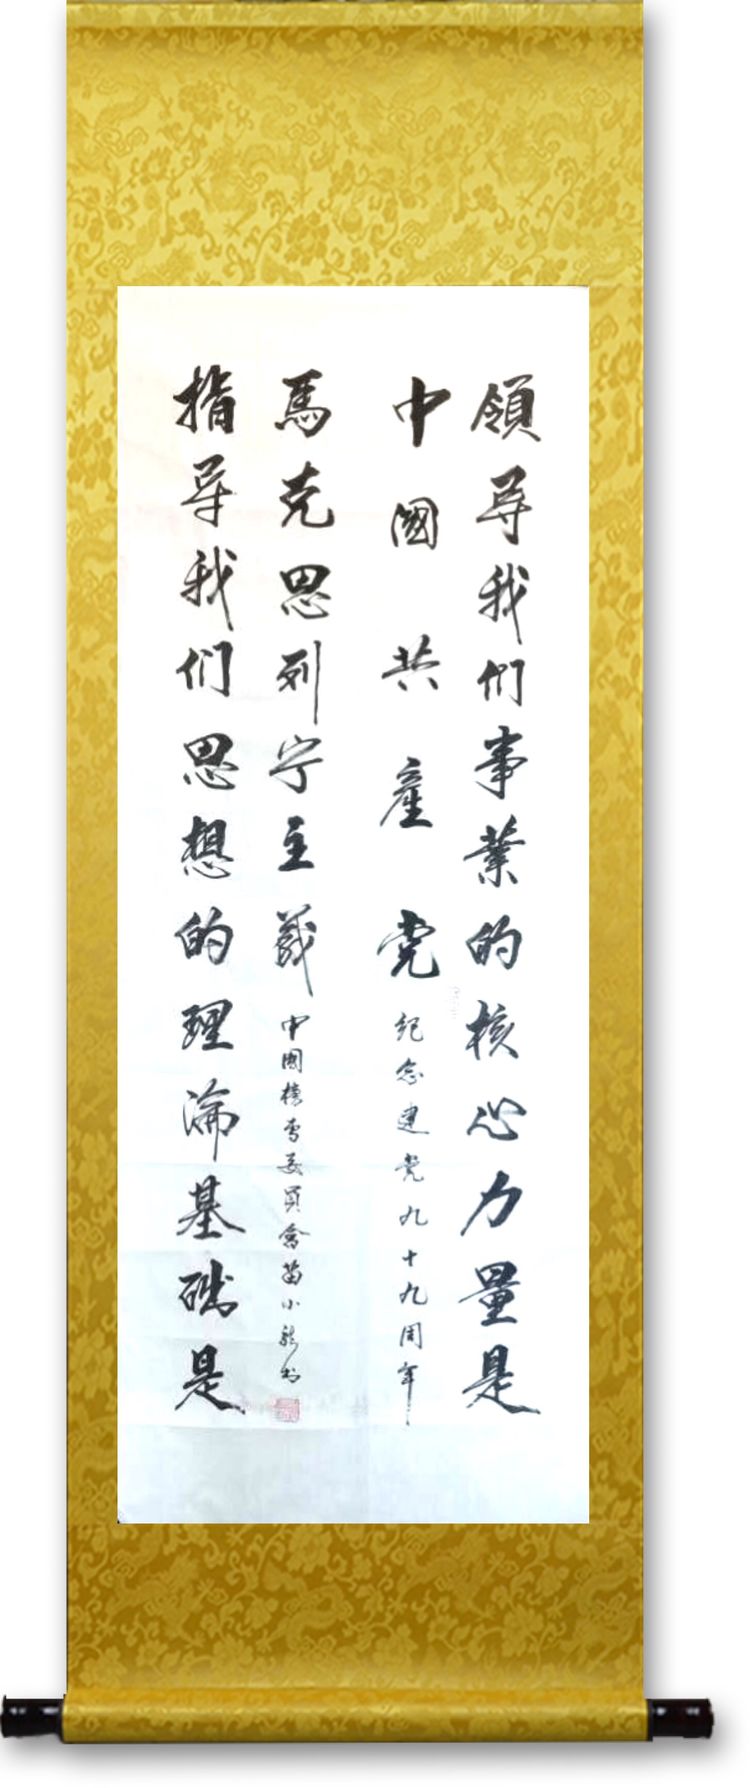 領导我们事業的核心力量是
中國共產党
纪念建党九十九周年
馬克思列宁主義
中國委員會苗小龙书
指导我们思想的理論基础是